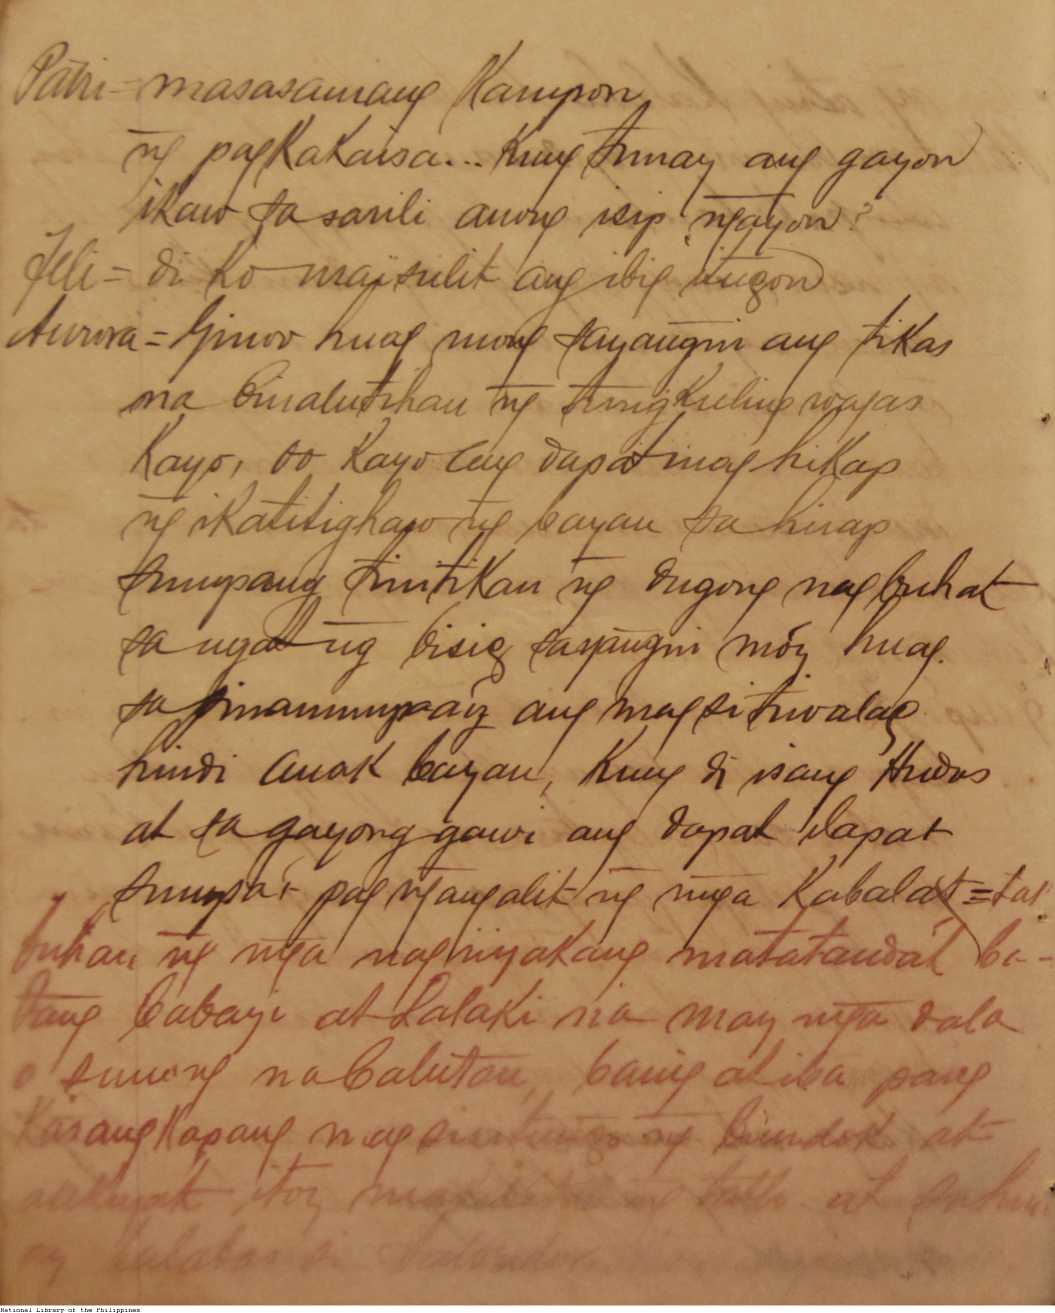 Patri = masasamang Kampon
ñg pagKaKaisa... Kung tunay ang gayon
ikaw sa sarili anong isip ñgayon?
Feli = di Ko maisulit ang ibig itugon
Aurora = Ginoo huag mong sayangin ang tikas
na binalutihan ñg tungkuling wagas
Kayo, oo Kayo ang dapat maghikap
ñg ikatitighaw ñg bayan sa hirap
sumpang tinitikan ñg dugong nagbuhat
sa ugat ñg bisig sayangin móy huag.
sa sinumpaáy ang magsitiwalag
hindi anak bayan, Kung di isang Hudas
at sa gayong gawi ang dapat ilapat
sumpa't pagñgañgalit ñg mga Kabalat = Tak
buhan ñg mga nagiiyakang matatanda't ba-
tang babayi at Lalaki na may mga dala
o sunong na balutan, banig at iba pang
Kasangkapang ñg bundok at
itoy at
ñg si
National Library of the Philippines